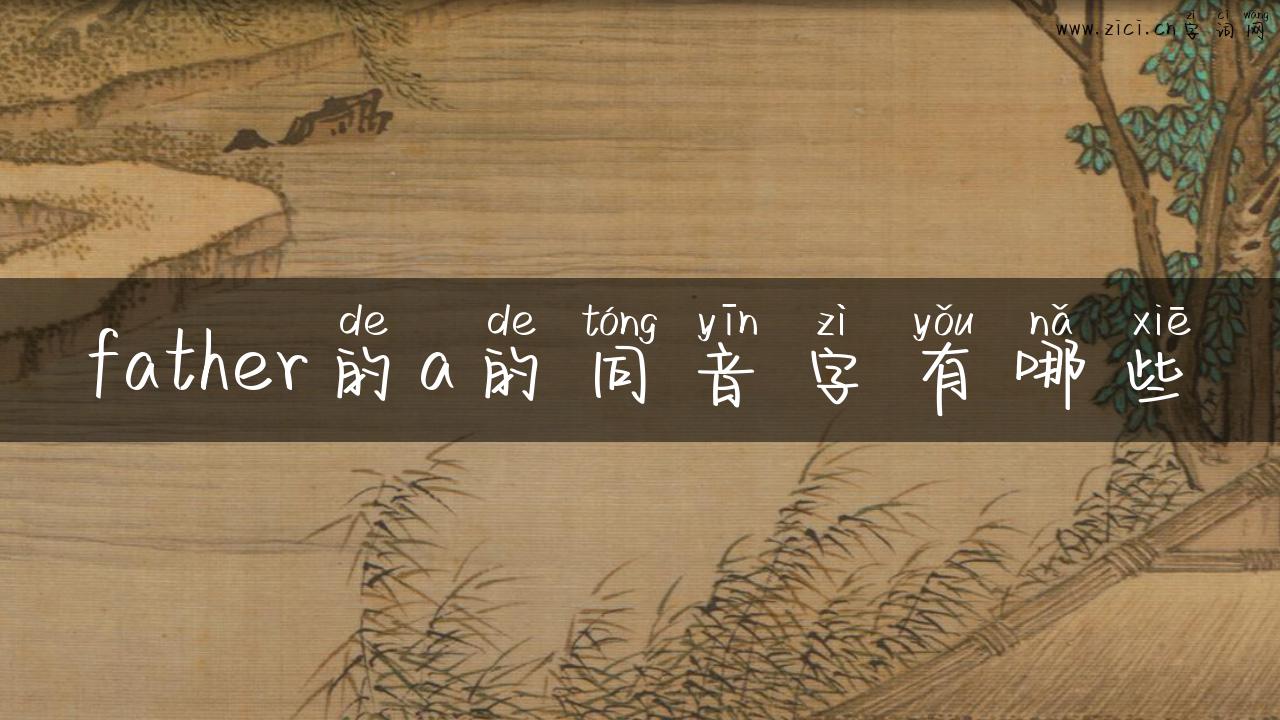 zì cí wǎng
www.zici.cn字词网
de de tóng yīn zì yǒu nǎ xiē
father的a的同音字有哪些